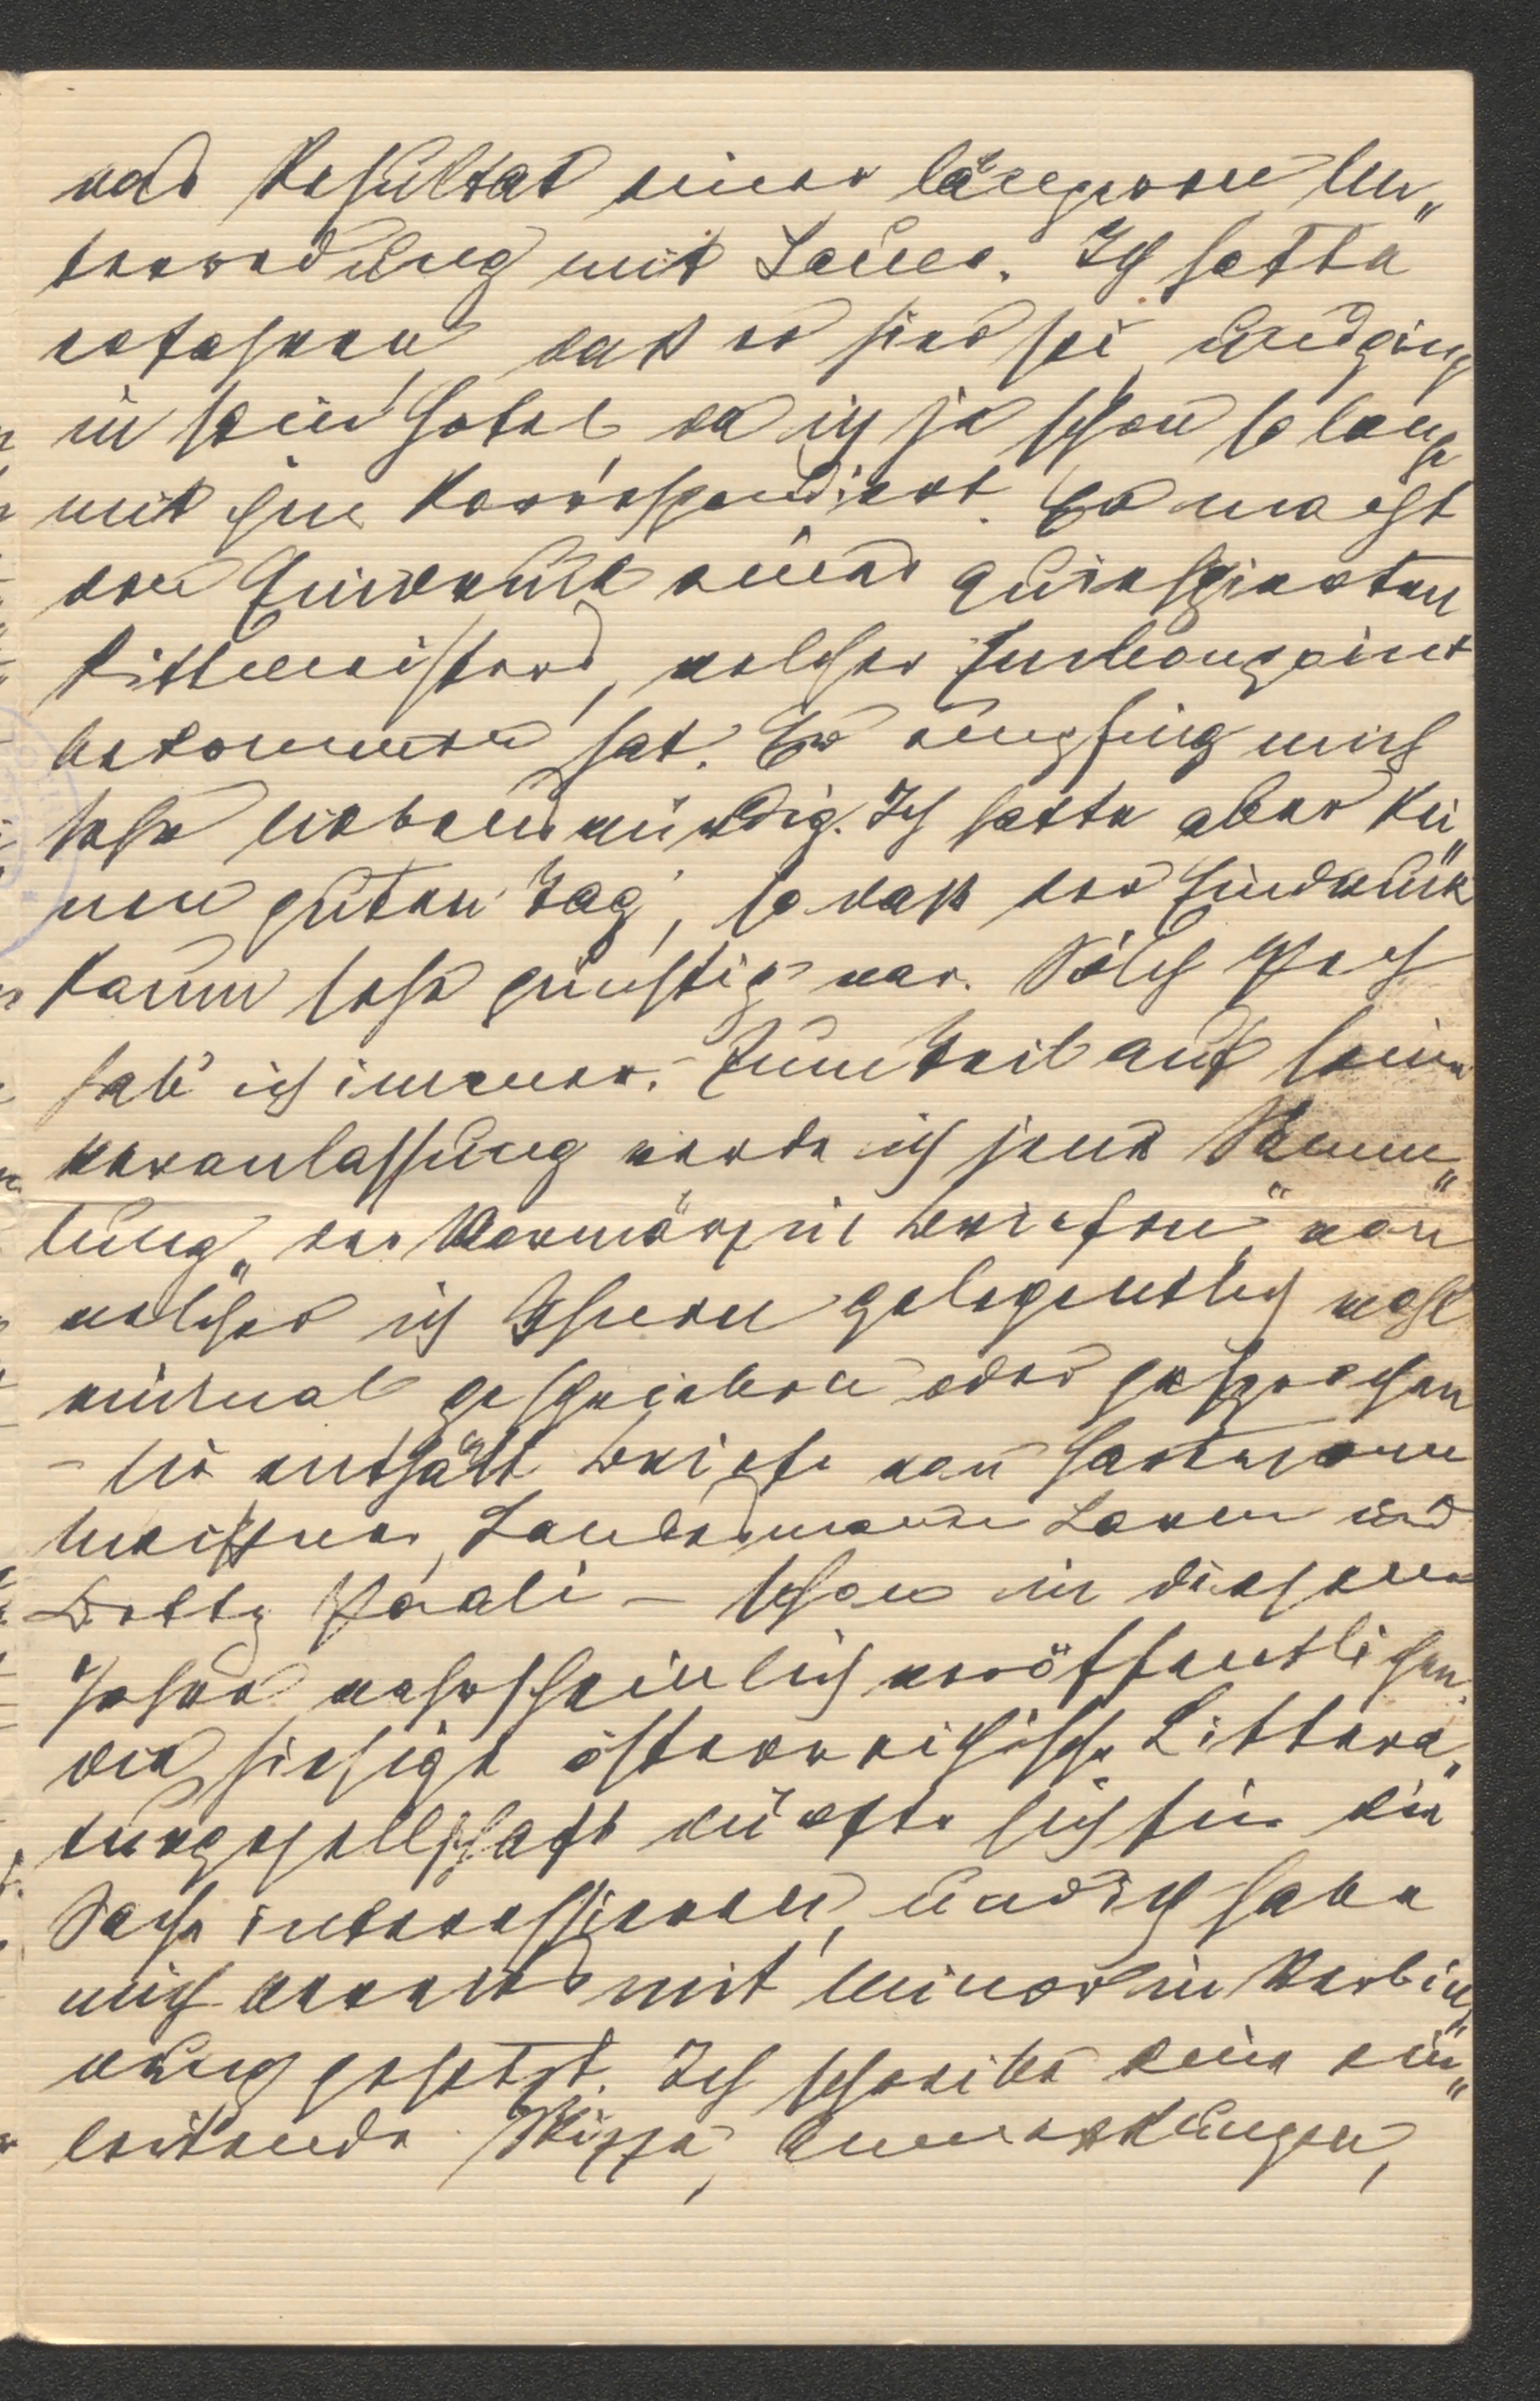 das Resultat einer längeren Un„
terredung mit Sauer. Ich hatte
erfahren, daß er hier sei, und ging
in sein Hotel, da ich ja schon so lange
mit ihm korrespondiert. Er macht
den Eindruck eines quieszierten
Rittmeisters, welcher Embonpoint
bekommen hat. Er empfing mich
sehr liebenswürdig. Ich hatte aber kei„
nen guten Tag, so daß der Eindruck
kaum sehr günstig war. Solch Pech
hab' ich immer. Zum Teil auf seine
Veranlassung werde ich jene Samm„
lung „der Vormärz in Briefen“ von
welcher ich Ihnen gelegentlich wohl
einmal geschrieben oder gesprochen
– sie enthält Briefe von Hartmann
Meißner, Landesmann Lorm und
Betty Paoli – schon in diesem
Jahre wahrscheinlich veröffentlichen.
Die hiesige österreichische Littera„
turgesellschaft dürfte sich für die
Sache interessieren, und ich habe
mich bereits mit Minor in Verbin„
dung gesetzt. Ich schreibe eine ein„
leitende Skizze, Anmerkungen,